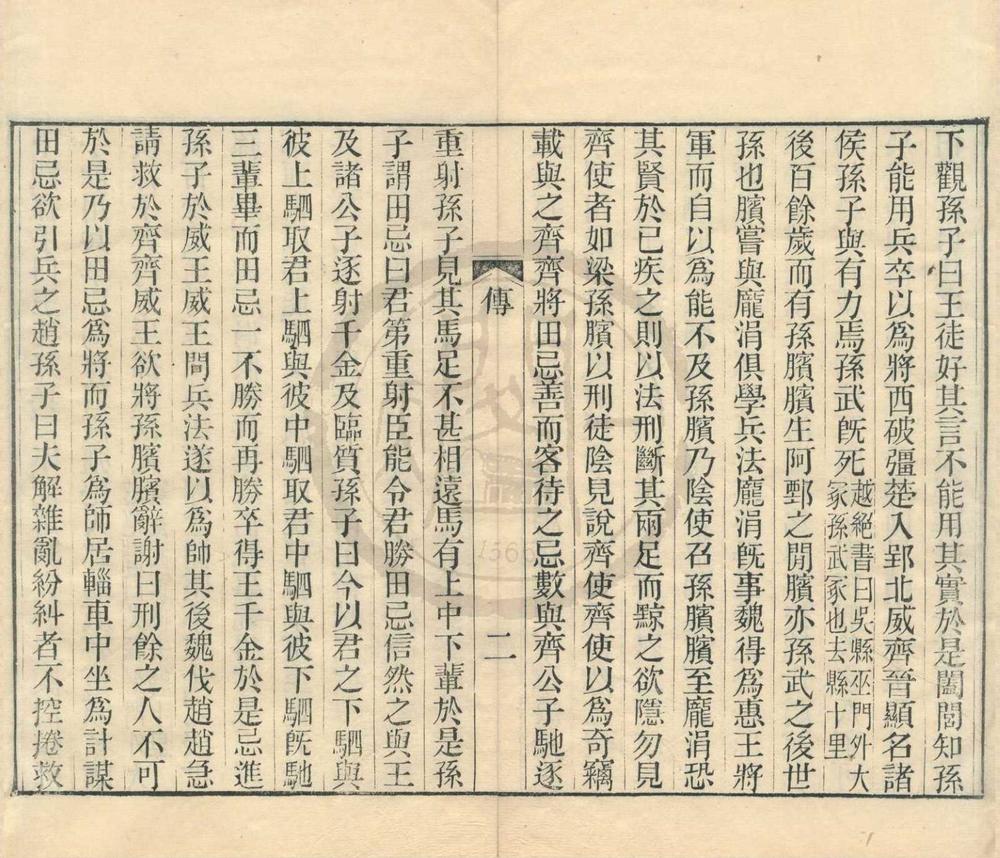 下觀孫子曰王徒好其言不能用其實於是闔閭知孫
子能用兵卒以爲將西破彊楚入郢北威齊晉顯名諸
侯孫子與有力焉孫武旣死越絕書曰吳縣巫門外大冢孫武冢也去縣十里
後百餘歲而有孫臏臏生阿鄄之閒臏亦孫武之後世
孫也臏嘗與龐涓俱學兵法龐涓旣事魏得爲惠王將
軍而自以爲能不及孫臏乃陰使召孫臏臏至龐涓恐
其賢於己疾之則以法刑斷其兩足而黥之欲隱勿見
齊使者如梁孫臏以刑徒陰見說齊使齊使以爲奇竊
載與之齊齊將田忌善而客待之忌數與齊公子馳逐
傳
二
重射孫子見其馬足不甚相遠馬有上中下輩於是孫
子謂田忌曰君第重射臣能令君勝田忌信然之與王
及諸公子逐射千金及臨質孫子曰今以君之下駟與
彼上駟取君上駟與彼中駟取君中駟與彼下駟旣馳
三輩畢而田忌一不勝而再勝卒得王千金於是忌進
孫子於威王威王問兵法遂以爲師其後魏伐趙趙急
請救於齊齊威王欲將孫臏臏辭謝曰刑餘之人不可
於是乃以田忌爲將而孫子爲師居輜車中坐爲計謀
田忌欲引兵之趙孫子曰夫解雜亂紛糾者不控捲救
1566